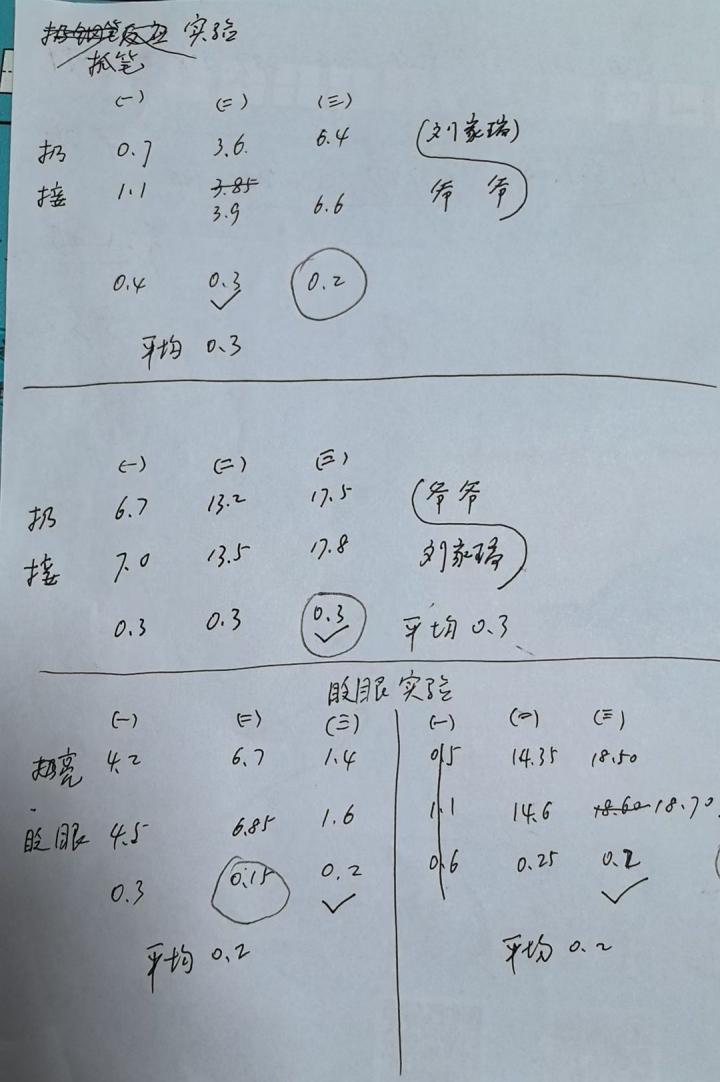 实验
抓笔
(一) (二) (三)
扔 0.7 3.6 6.4 (刘家瑞)
接 1.1 3.85 爷爷
3.9 6.6
0.4 0.3 0.2
平均 0.3
(一) (二) (三)
扔 6.7 13.2 17.5 (爷爷
接 7.0 13.5 17.8 刘家瑞)
0.3 0.3 0.3 平均 0.3
眨眼实验
(一) (二) (三) (一) (二) (三)
亮 4.2 6.7 1.4 0.5 14.35 18.50
眨眼 4.5 6.85 1.6 1.1 14.6 18.60 18.70
0.3 0.15 0.2 0.6 0.25 0.2
平均 0.2 平均 0.2